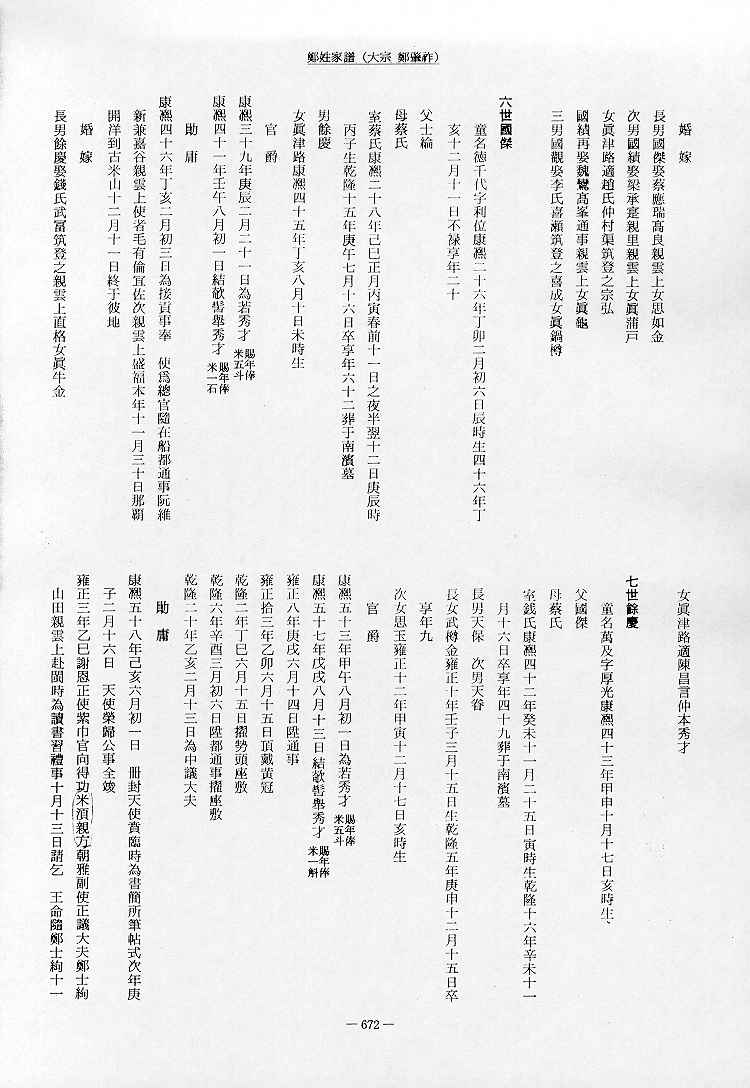 鄭姓家譜（大宗 鄭肇祚）
婚嫁
長男國傑娶蔡應瑞高良親雲上女思如金
次男國績娶梁承寵親里親雲上女眞蒲戸
女眞津路適趙氏仲村渠筑登之宗弘
國績再娶魏鸞高峯通事親雲上女眞龜
三男國觀娶李氏喜瀬筑登之喜成女眞鍋樽
六世國傑
童名德千代字利位康凞二十六年丁卯二月初六日辰時生四十六年丁
亥十二月十一日不禄享年二十
父士綸
母蔡氏
室蔡氏康凞二十八年己巳正月丙寅春前十一日之夜半翌十二日庚辰時
丙子生乾隆十五年庚午七月十六日卒享年六十二葬于南濱墓
男餘慶
女眞津路康凞四十五年丁亥八月十日未時生
官爵
康凞三十九年庚辰二月二十一日為若秀才 賜年俸米五斗
康凞四十一年壬午八月初一日結欹髻舉秀才 賜年俸米一石
勛庸
康凞四十六年丁亥二月初三日為接貢事奉　使爲總官隨在船都通事阮維
新兼嘉谷親雲上使者毛有倫宜佐次親雲上盛福本年十一月三十日那覇
開洋到古米山十二月十一日終于彼地
婚嫁
長男餘慶娶錢氏武冨筑登之親雲上直格女眞牛金
女眞津路適陳昌言仲本秀才
七世餘慶
童名萬及字厚光康凞四十三年甲申十月十七日亥時生、
父國傑
母蔡氏
室銭氏康凞四十二年癸未十一月二十五日寅時生乾隆十六年辛未十一
月十六日卒享年四十九葬于南濱墓
長男天保　次男天眷
長女武樽金雍正十年壬子三月十五日生乾隆五年庚申十二月十五日卒
享年九
次女思玉雍正十二年甲寅十二月十七日亥時生
官爵
康凞五十三年甲午八月初一日為若秀才 賜年俸米五斗
康凞五十七年戊戌八月十三日結欹髻舉秀才 賜年俸米一斛
雍正八年庚戌六月十四日陞通事
雍正拾三年乙卯六月十五日頂戴黄冠
乾隆二年丁巳六月十五日擢勢頭座敷
乾隆六年辛酉三月初六日陞都通事擢座敷
乾隆二十年乙亥二月十三日為中議大夫
勛庸
康凞五十八年己亥六月初一日　冊封天使賁臨時為書簡所筆帖式次年庚
子二月十六日　天使榮歸公事全竣
雍正三年乙巳謝恩正使紫巾官向得功米須親方朝雅副使正議大夫鄭士絢
山田親雲上赴閩時為讀書習禮事十月十三日請乞　王命隨鄭士絢十一
— 672 —